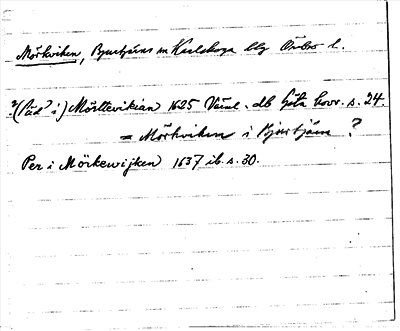 Mörkviken, Bjurtjärn sn Karlskoga bg Örebro l.
?(Päd? i) Mörttevikian 1625 Värml. db Göta hovr. s. 24.
= Mörkviken i Bjurtjärn ?
Per i Mörkewijken 1637 ib. s. 30.